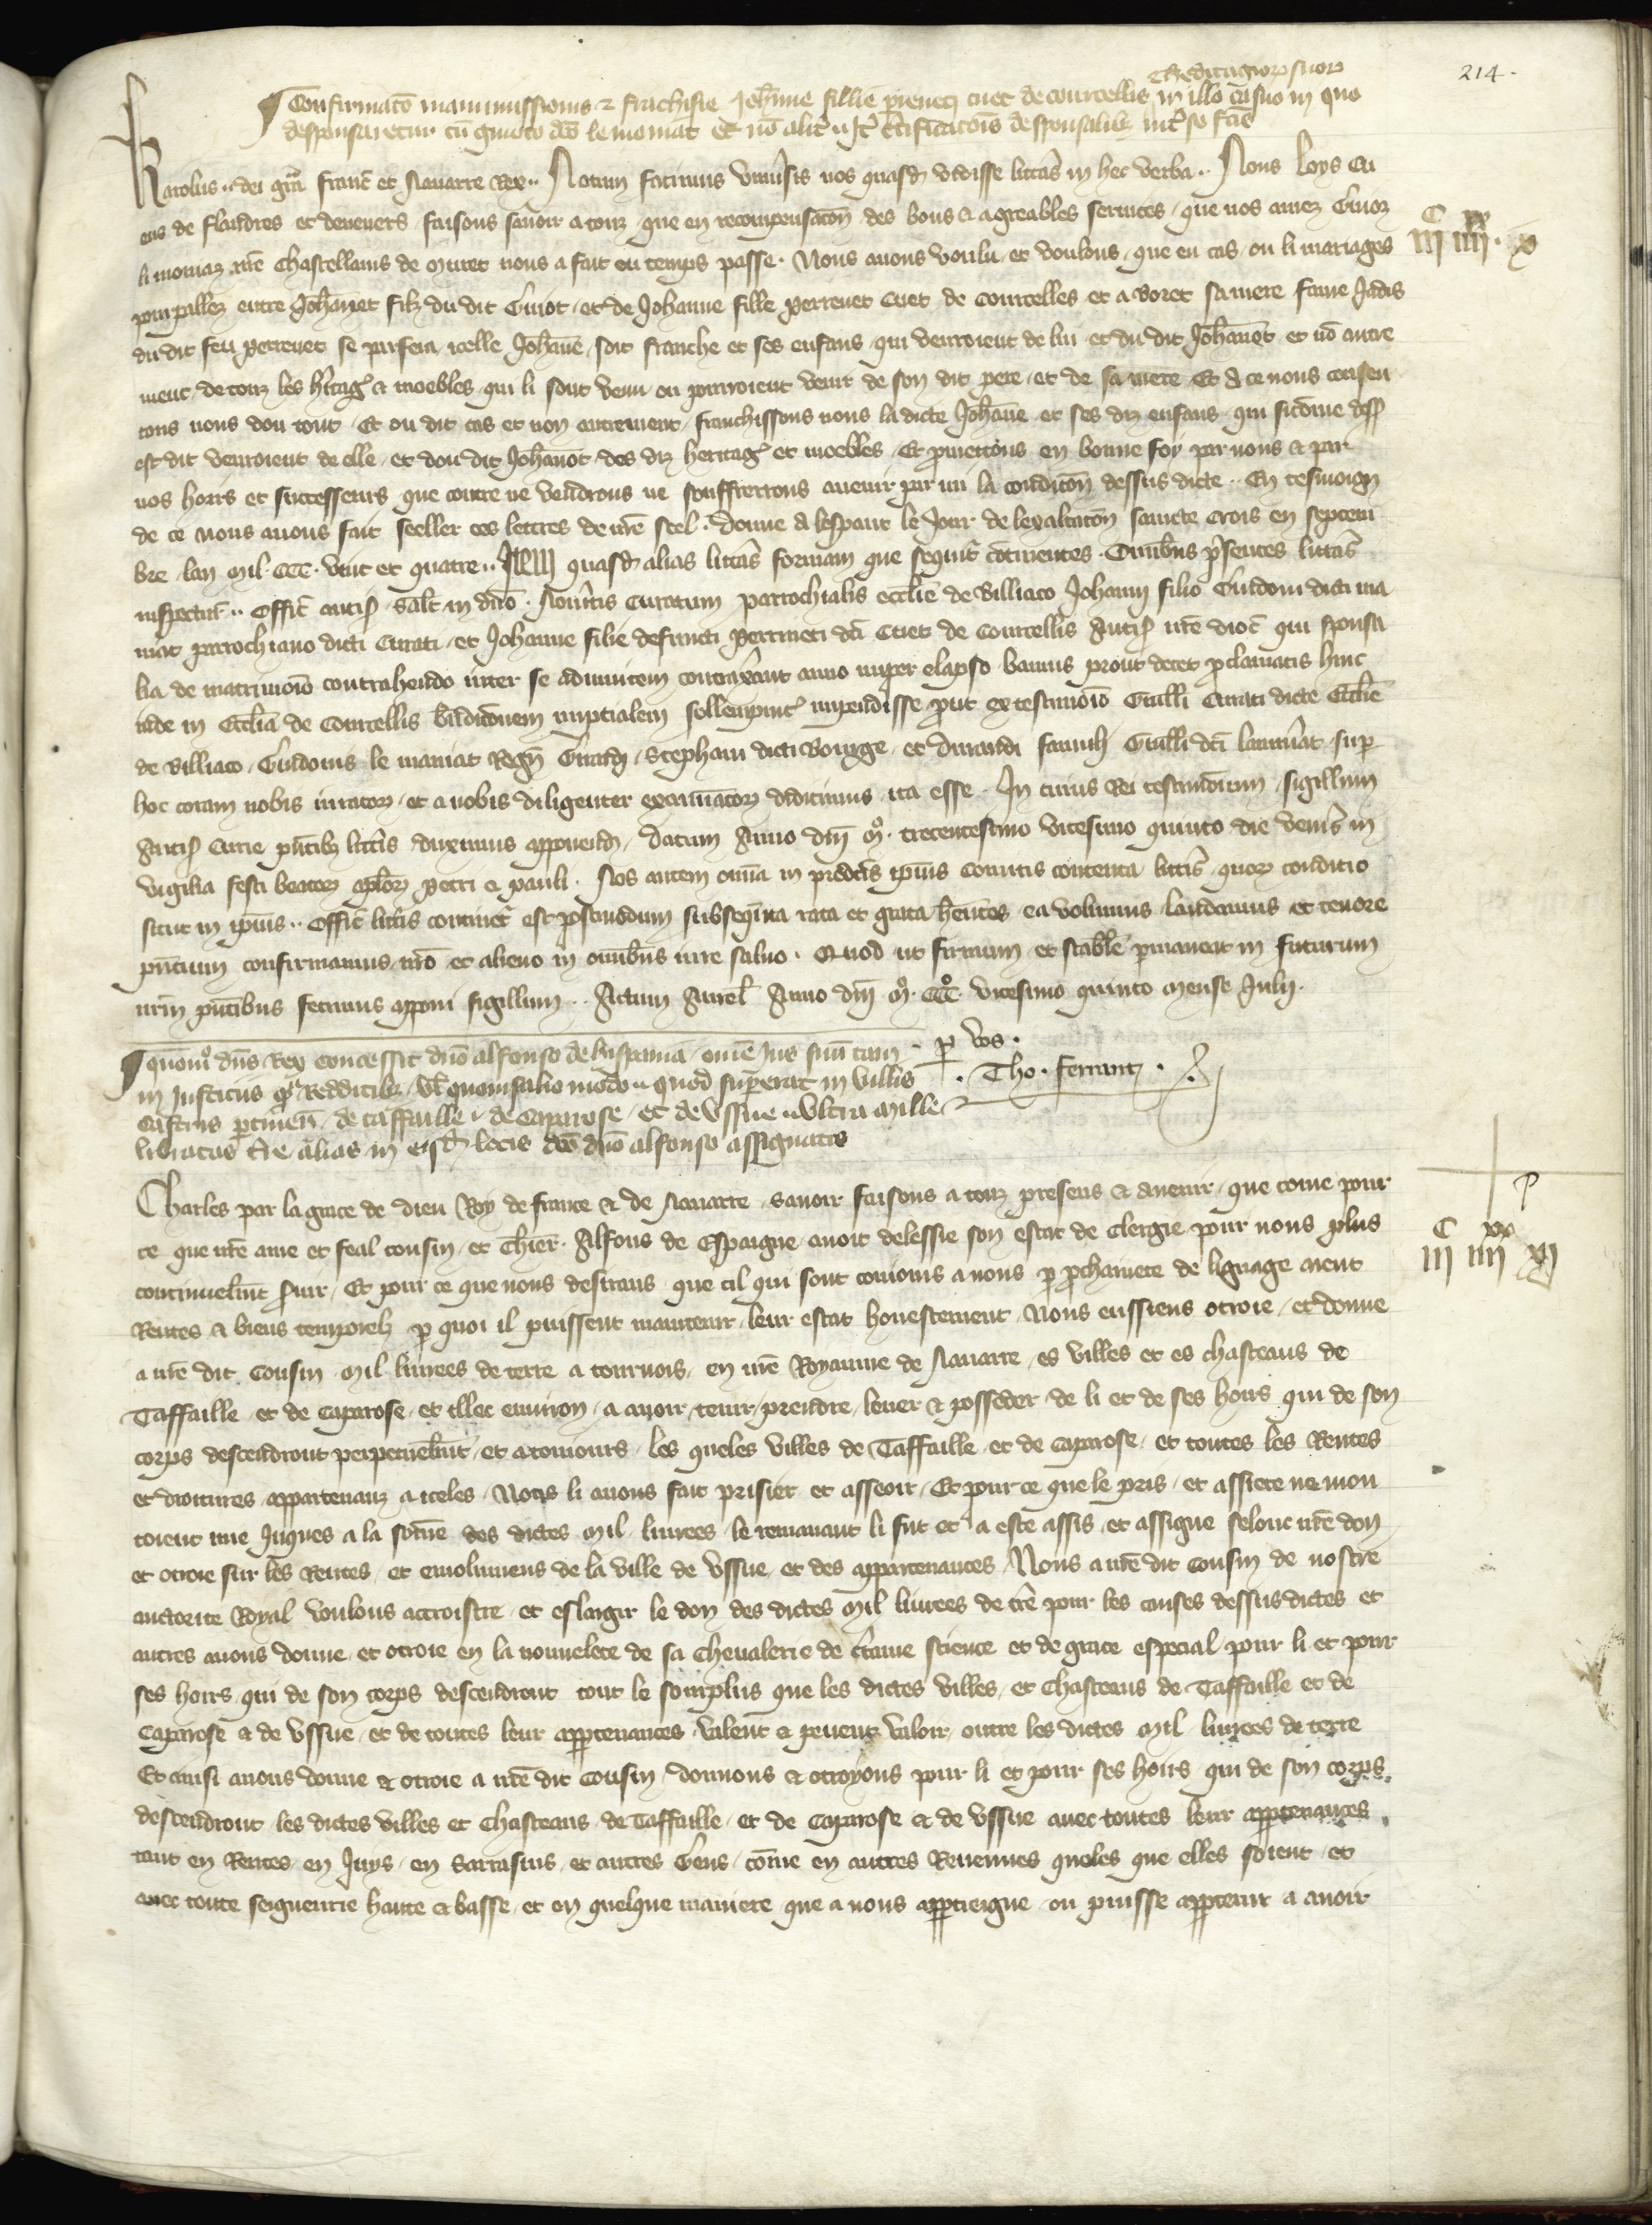 214.
Et heditagiorum suorum
Confirmatio manumissionis et franchisie Johanne fillie perreneti cuet de courcellis in illo casu suo in quo
desponsaretur cum guioto dco le momat Et no aliter nec certificationis desponsalibus inter se fcis
Karolus.. dei gra Franc et Navarre Rex.. Notum facimus universis nos quasdam vidisse litteras in hec verba.. Nous Loys Cu
ens de flandres et de nevers faisons savoir a touz que en recompensaton des bons et agreables services que nos amez Guioz
li momaz nre Chastellains de Muret nous a fait ou temps passe. Nous avons voulu et voulons que en cas ou li mariages
pourpallez entre Johannet filz du dit Guiot et de Johanne fille perrenet Cuet de Courcelles et a Boret sa mere fame Jadis
du dit feu perrenet se parfera icelle Johanne soit franche et ses enfans qui venroient de lui et du dit Johannet et no autre
ment de touz les hitages et moebles qui li sont venu ou pourroient venir de son dit pere et de sa mere Et a ce nous consen
tons nous dou tout Et ou dit cas et non autrement franchissons nous la dicte Johanne et ses diz enfans qui sicome dess
est dit venroient de elle et dou dit Johanot des diz heritages et moebles Et prometons en bonne foy par nous et par
nos hoirs et successeurs que contre ne vendrons ne souffrerrons avenir par nu la condicion dessus dicte.. En tesmoign
de ce nous avons fait seeller ces lettres de nre scel. Donne a lespaut le Jour de lexaltaton saincte Crois en septem
bre lan Mil CCC. vint et quatre.. Item quasdam alias litteras formam que sequitur continentes. Omnibus presentes litteras
inspecturis.. Offic antis salt in dno. Noveritis Curatum parrochialis ecclie de Villiaco Johanni filio Guidoni dicti ma
mat parrochiano dicti Curati et Johanne filie defuncti perrineti dci Cuet de Courcellis Antis nre dioc qui sponsa
lia de matrimoio contrahendo inter se adinvicem contraxerant anno nuper elapso bannis prout decet proclamatis hinc
inde in Ecclia de Courcellis benedictionem nuptialem sollempniter impendisse prout ex testimoio Guilli Curati dicte Ecclie
de Villiaco Guidonis le mamat Regn Girardi Stephani dicti Bourge et Durandi famuli Guilli dci lanmat super
hoc coram nobis iuratorum et a nobis diligenter examinatorum didicimus ita esse. In cuius Rei testimonium sigillum
Antis Curie pntibus litteris duximus apponendum. Datum Anno dni Mo. trecentesimo vicesimo quinto die veneris in
vigilia festi beatorum aplorum petri et pauli. Nos autem omnia in predictis ipsius Comitis contenta litteris quorum conditio
sicut in ipsius.. Offic litteris continetur est postmodum subsequuta rata et grata hentes ea volumus laudamus et tenore
pntium confirmamus nro et alieno in omnibus iure salvo. Quod ut firmum et stabile permaneat in futurum
nrm pntibus fecimus apponi sigillum.. Actum Aurel Anno dni Mo. CCCo. vicesimo quinto Mense Julii.
per vos.
Tho. Ferrant
quomodo dns Rex concessit dno alfonso de hispania omne Jus suum tam
in Justiciis quam Redditibus vel quovis alio modo.. quod superat in villis
Castris pertinen de taffaille de Caparose et de Ussue ultra mille
libratas tre alias in eisdem locis dco dno alfonso assignatis
Charles par la grace de dieu Roy de France et de Navarre savoir faisons a touz presens et avenir que come pour
ce que nre ame et feal cousin et Chier. Alfons de Espaigne avoit delessie son estat de Clergie pour nous plus
continuelmt servir Et pour ce que nous desirans que cil qui sont conioins a nous par prchainete de lignage aient
Rentes et biens temporelz par quoi il puissent maintenir leur estat honestement Nous eussiens otroie et donne
a nre dit Cousin Mil livrees de terre a tournois en nre Royaume de Navarre es villes et es chasteaus de
Taffaille et de Caparose et illec environ a avoir tenir prendre lever et posseder de li et de ses hoirs qui de son
corps descendront perpetuelmnt et a tousiours les queles villes de Taffaille et de Caparose et toutes les Rentes
et droitures appartenanz a iceles Nous li avons fait prisier et asseoir Et pour ce que le pris et assiete ne mon
toient mie Juques a la some des dictes Mil livrees le remanant li fut et a este assis et assigne selonc nre don
et otroie sur les Rentes et emolumens de la ville de Ussue et des appartenances Nous a nre dit Cousin de nostre
auctorite Royal voulons accroistre et eslargir le don des dictes Mil livrees de tre pour les causes dessus dictes et
autres avons donne et otroie en la nouvelete de sa Chevalerie de certaine science et de grace especial pour li et pour
ses hoirs qui de son corps descendront tout le sourplus que les dictes villes et Chasteaus de Taffaille et de
Caparose et de Ussue et de toutes leur appartenances valent et pevent valoir outre les dictes Mil livrees de terre
Et ainsi avons donne et otroie a nre dit Cousin donnons et otroyons pour li et pour ses hoirs qui de son corps
descendront les dictes villes et Chasteaus de Taffaille et de Caparose et de Ussue avec toutes leur appartenances
tant en Rentes en Juys en Sarrasins et autres Gens come en autres Revenues queles que elles soient et
avec toute seigneurie haute et basse et en quelque maniere que a nous appartiegne ou puisse appartenir a avoir
C xx
iii iiii. x
C xx
iii iiii xi